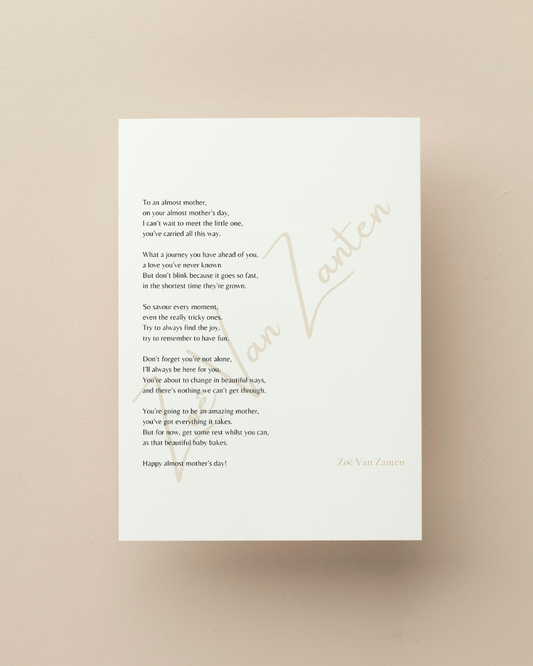 To an almost mother,
on your almost mother's day,
I can't wait to meet the little one,
you've carried all this way.
What a journey you have ahead of you,
a love you've never known
But don't blink because it goes so fast,
in the shortest time they're grown.
So savour every moment,
even the really tricky ones.
Try to always find the joy,
try to remember to have fun.
Don't forget you're not alone,
I'll always be here for you.
You're about to change in beautiful ways,
and there's nothing we can't get through.
You're going to be an amazing mother,
you've got everything it takes.
But for now, get some rest whilst you can,
as that beautiful baby bakes.
Happy almost mother's day!
Zoë Van Zanten
Zoë Van Zanten